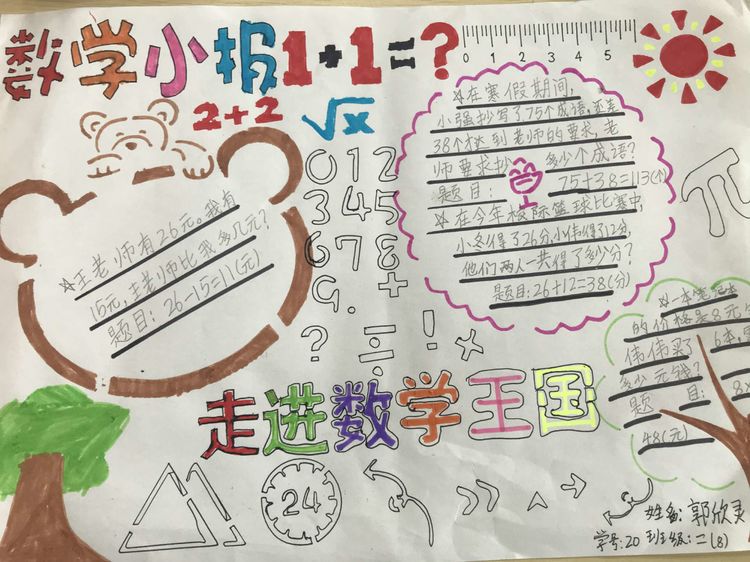 数学小报1+1=?
0 1 2 3 4 5
2+2
√x
0 1 2
3 4 5
6 7 8
9. +
? ÷ ! ×
☆王老师有26元。我有
15元,王老师比我多几元?
题目:26-15=11(元)
☆在寒假期间,
小强抄写了75个成语,还差
38个才达到老师的要求,老
师要求抄 多少个成语?
题目: 75+38=113(个)
☆在今年校际篮球比赛中,
小冬得了26分,小伟得了12分,
他们两人一共得了多少分?
题目:26+12=38(分)
π
☆一本笔记本
的价格是8元
伟伟买了 6本,
多少元钱?
题 目: 8
48(元)
走进数学王国
24
姓名:郭欣灵
学号:20 班级:二(8)